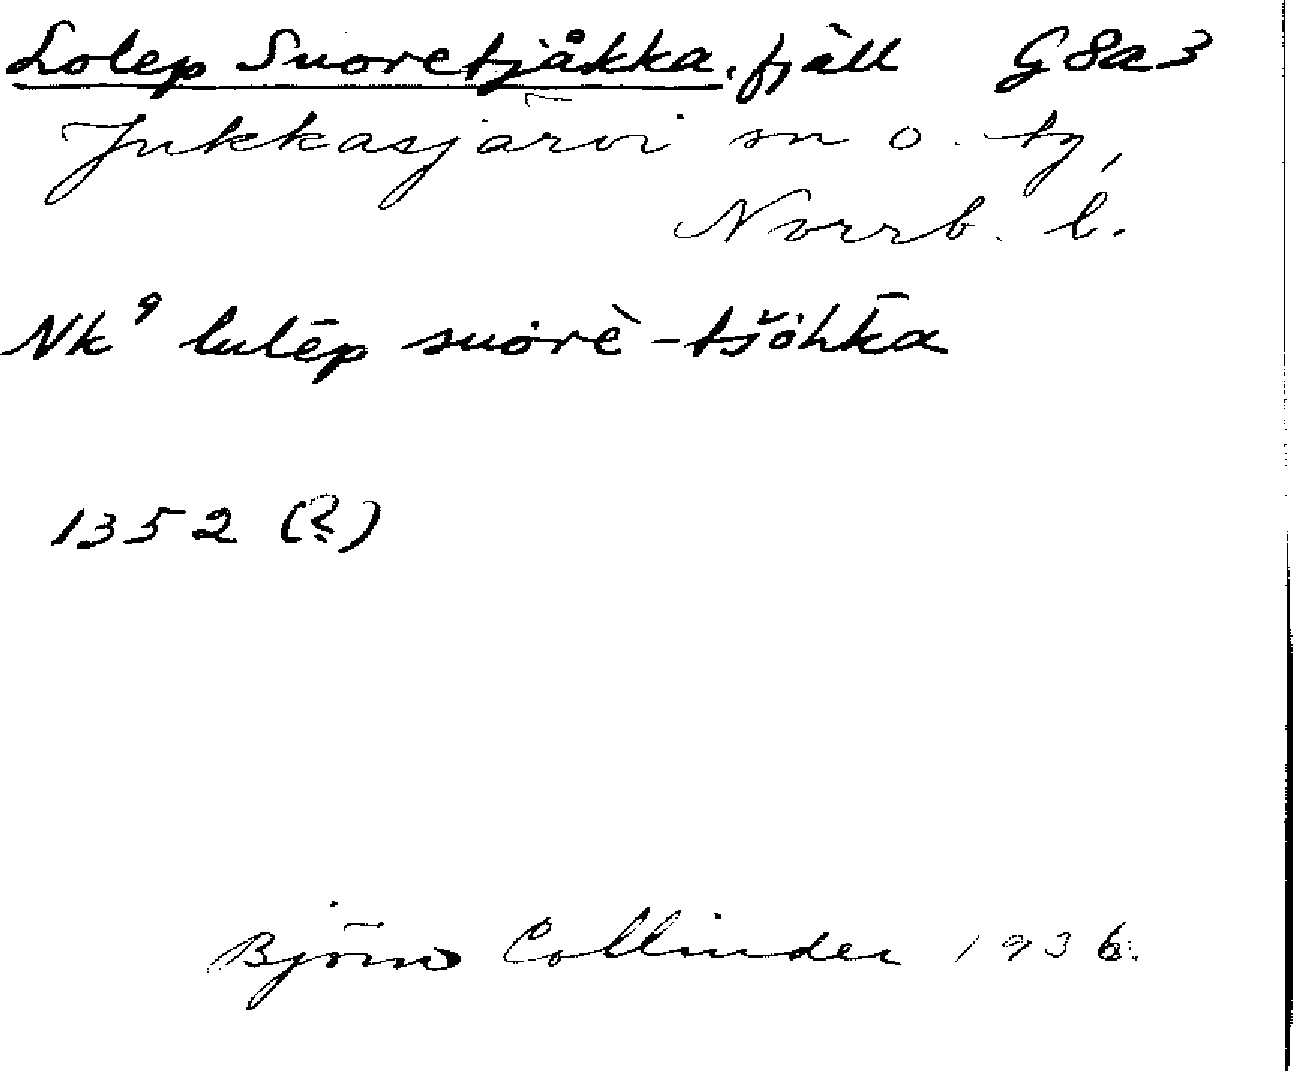 Lolep Suoretjåkka, fjäll G8a3
Jukkasjärvi sn o. tg,
Norrb. l.
Nk⁹ lulēp suòrè-tšȯhkā
1352 (?)
Björn Collinder 1936.